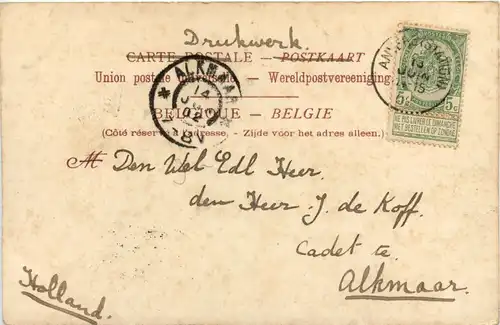 Drukwerk.
CARTE POSTALE - POSTKAART
Union postale universelle - Wereldpostvereeniging.
BELGIQUE - BELGIE
(Côté réservé à l'adresse. - Zijde voor het adres alleen.)
M Den Wel Edl Heer.
den Heer J. de Koff.
Cadet te
Alkmaar.
Holland.
ALKMAAR
14
5
NE PAS LIVRER LE DIMANCHE
NIET BESTELLEN OP ZONDAG